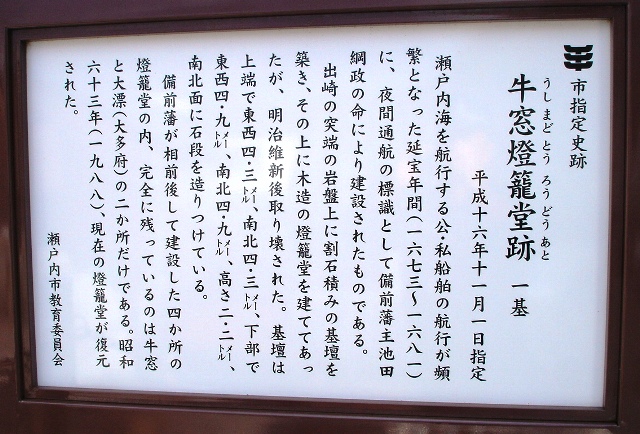 市指定史跡
うしまどとうろうどうあと
牛窓燈籠堂跡 一基
平成十六年十一月一日指定
瀬戸内海を航行する公・私船舶の航行が頻
繁となった延宝年間(一六七三〜一六八一)
に、夜間通航の標識として備前藩主池田
綱政の命により建設されたものである。
出崎の突端の岩盤上に割石積みの基壇を
築き、その上に木造の燈籠堂を建ててあっ
たが、明治維新後取り壊された。基壇は
上端で東西四・三メートル、南北四・三メートル、下部で
東西四・九メートル、南北四・九メートル、高さ二・二メートル、
南北面に石段を造りつけている。
備前藩が相前後して建設した四か所の
燈籠堂の内、完全に残っているのは牛窓
と大漂(大多府)の二か所だけである。昭和
六十三年(一九八八)、現在の燈籠堂が復元
された。
瀬戸内市教育委員会